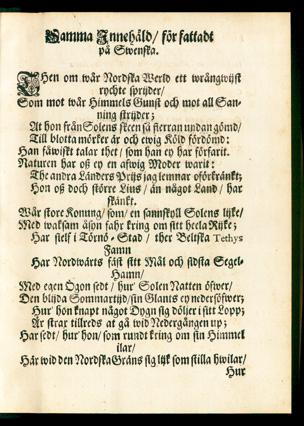 Samma Innehåld/ för fattadt
på Swenska.
THen om wår Nordska Werld ett wrångwijst
rychte sprijder/
Som mot wår Himmels Gunst och mot all San-
ning strijder;
At hon från Solens skeen så fierran undan gömd/
Till blotta mörker är och ewig Köld fördömd:
Han fåwijskt talar thet/ som han ey har förfarit.
Naturen har oß ey en afwig Moder warit:
The andra Länders Prijs jag lemnar oförkränkt;
Hon oß doch större Lius/ än något Land/ har
skänkt.
Wår store Konung/ som/ en sannskyll Solens lijke/
Med waksam åsyn fahr kring om sitt heela Rijke;
Har sielf i Törnö-Stad/ ther Beltska Tethys
Famn
Har Nordwärts fäst sitt Mål och sidsta Segel-
Hamn/
Med egen Ögon sedt/ hur' Solen Natten öfwer/
Den blijda Sommartijd/ sin Glants ey nedersöfwer;
Hur' hon knapt något Dygn sig döljer i sitt Lopp;
Är strax tillreds at gå wid Nedergången up;
Har sedt/ hur' hon/ som rundt kring om sin Himmel
ilar/
Här wid den Nordska Gräns sig lijk som stilla hwilar/
Hur